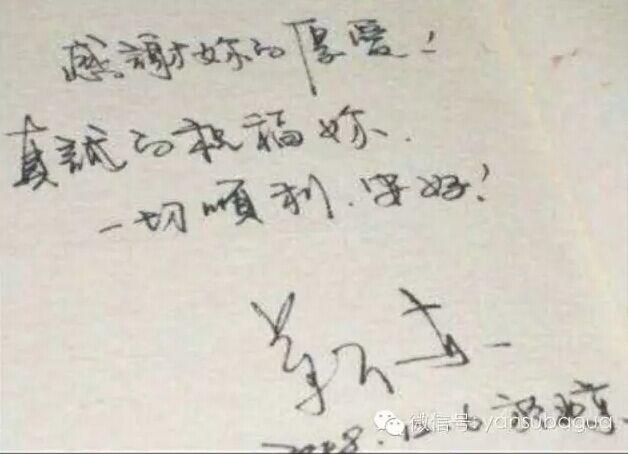 感謝妳的厚愛！
真誠的祝福妳、
一切順利、安好！
靳东
2008.12.
微信号: yansubagua